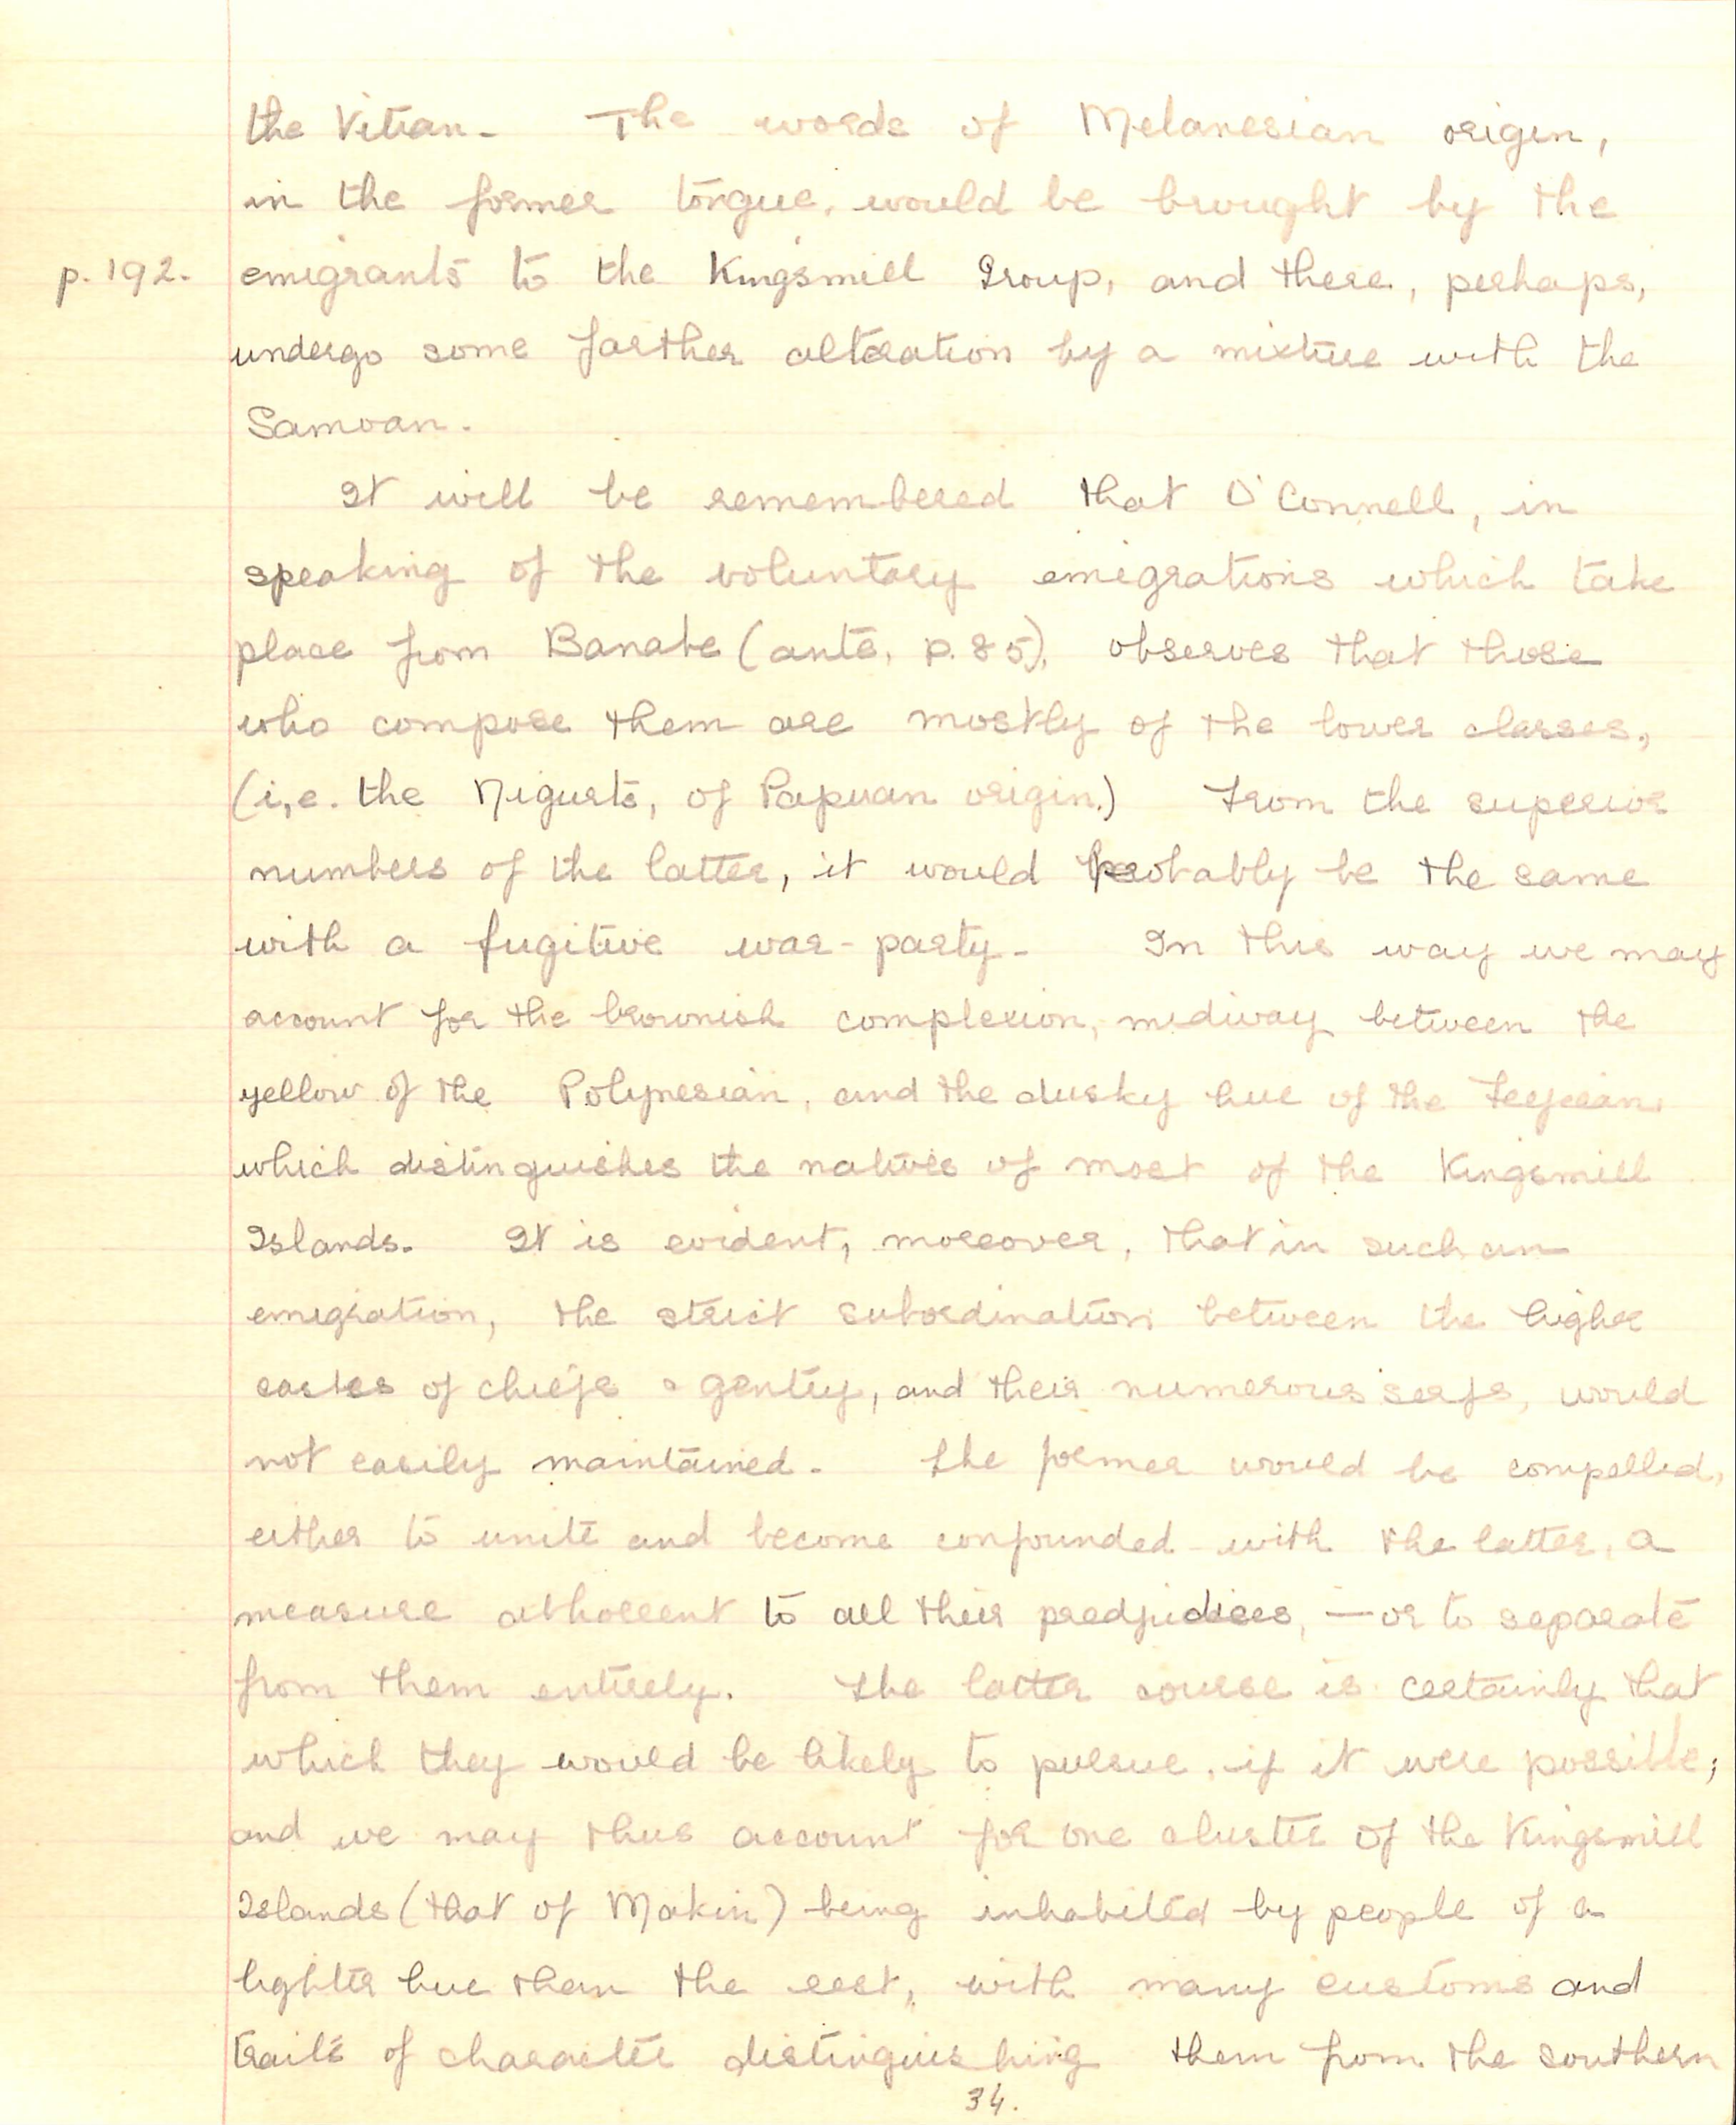 the Vitian. The words of Melanesian origin,
in the former tongue, would be brought by the
p. 192. emigrants to the Kingsmill Group, and there, perhaps,
undergo some farther alteration by a mixture with the
Samoan.
It will be remembered that O'Connell, in
speaking of the voluntary emigrations which take
place from Banabe (ante, p. 85), observes that those
who compose them are mostly of the lower classes,
(i,e. the Nigurts, of Papuan origin.) From the superior
numbers of the latter, it would probably be the same
with a fugitive war-party. In this way we may
account for the brownish complexion, midway between the
yellow of the Polynesian, and the dusky hue of the Feejeean,
which distinguishes the natives of most of the Kingsmill
Islands. It is evident, moreover, that in such an
emigration, the strict subordination between the higher
castes of chiefs & gentry, and their numerous serfs, would
not easily maintained. The former would be compelled,
either to unite and become confounded with the latter, a
measure abhorrent to all their predjudices, — or to separate
from them entirely. The latter course is certainly that
which they would be likely to pursue, if it were possible;
and we may thus account for one cluster of the Kingsmill
Islands (that of Makin) being inhabited by people of a
lighter hue than the rest, with many customs and
traits of character distinguishing them from the southern
34.